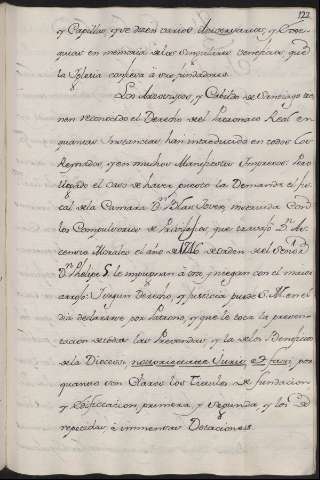 122
y Capillas, que dizen varios Aniversarios, y Exe-
quias en memoria de los singulares beneficios, que
la Yglesia confiesa a sus fundadores.
Los Arzobispos, y Cabildo de Santiago tie-
nen reconocido el Derecho del Patronato Real en
quantas Instancias han introducido en todos los
Reynados, y en muchos Manifiestos Impresos: Pero
llegado el caso de haver puesto la Demanda el fis-
cal de la Camara Dn. Blas Jover, instruida con
los Compulsorios de Privilegios, que travajó Dn. As-
censio Morales el año de 1746 de orden del Señor
Dn. Phelipe 5. le impugnan a ora, y niegan con el maior
arrojo: Ningun Derecho, y justicia puede S. M. en el
dia declararse por Patrono, y que le toca la presen-
tacion de todas las Prevendas, y la de los Beneficios
de la Diocesi, notoriamente Juris, et facti, por
quanto son Claros los Titulos de fundacion
y edificacion, primera, y segunda, y los de
repetidas, é immensas Dotaciones.